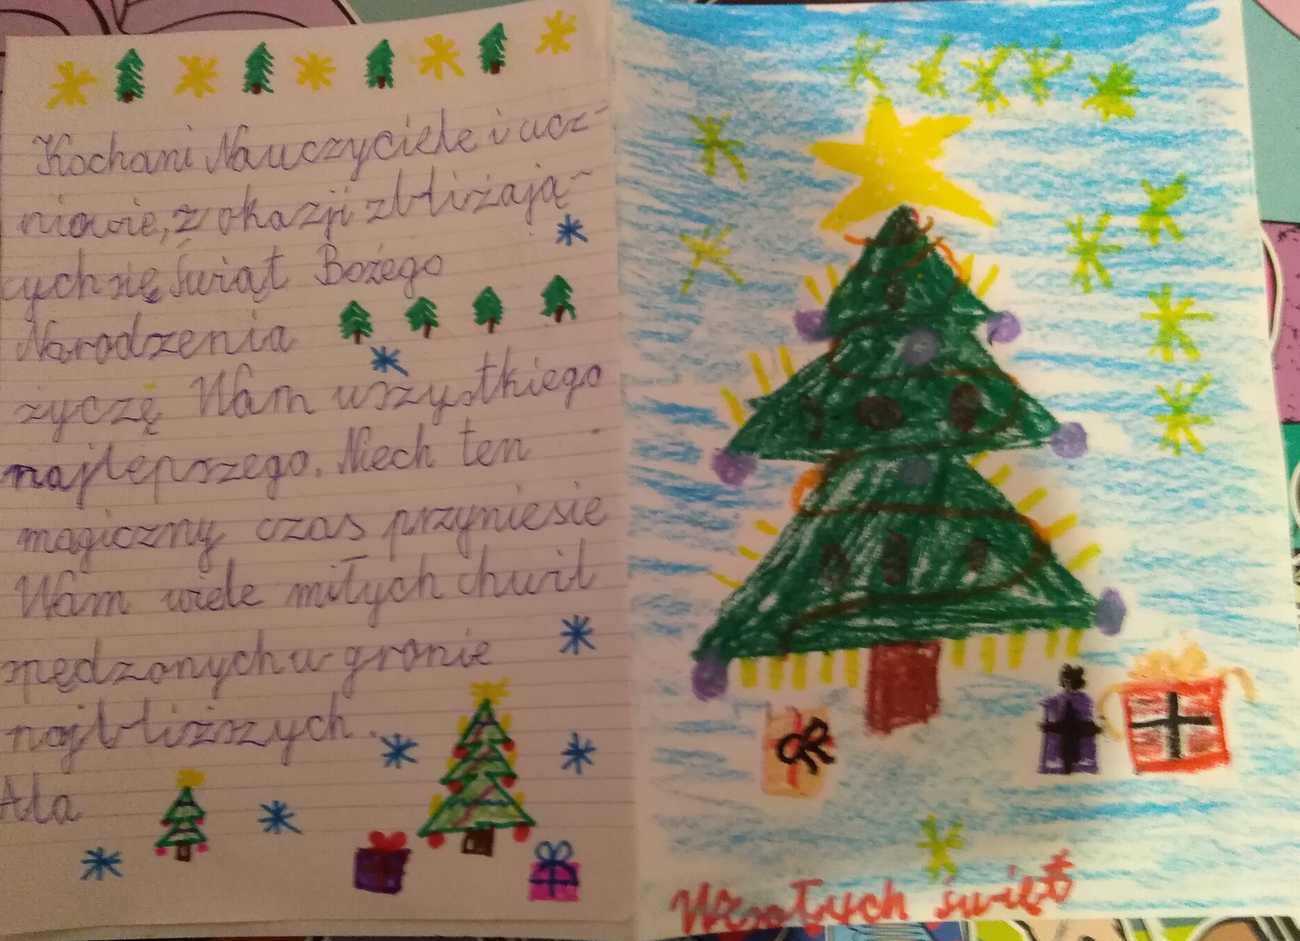 Kochani Nauczyciele i ucz-
niowie, z okazji zbliżają-
cych się Świąt Bożego
Narodzenia
życzę Wam wszystkiego
najlepszego. Niech ten
magiczny czas przyniesie
Wam wiele miłych chwil
spędzonych w gronie
najbliższych.
Ala
Wesołych świąt